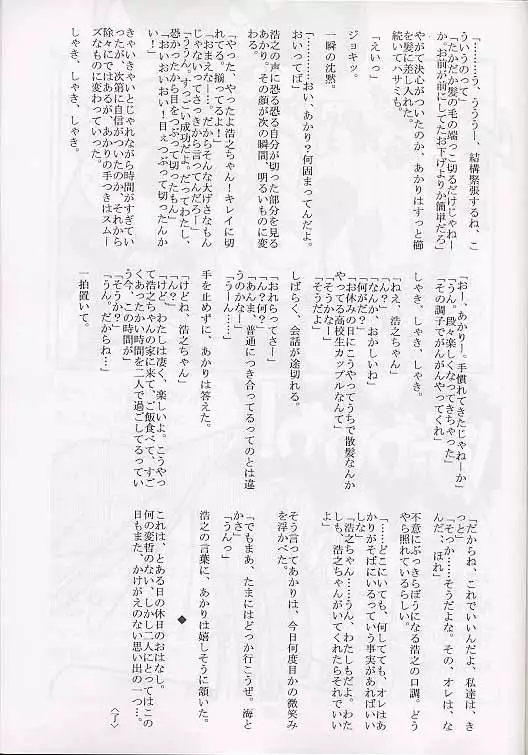 「………う、うううー、結構緊張するね、こ
ういうのって」
「たかだか髪の毛の端っこ切るだけじゃねー
か。お前が前にしてたお下げよりか簡単だろ」
やがて決心がついたのか、あかりはすっと櫛
を髪に差し入れた。
続いてハサミも。
「えいっ」
ジョキッ。
一瞬の沈黙。
「…………おい、あかり?何固まってんだよ。
おいってば」
浩之の声に恐る恐る自分が切った部分を見る
あかり。その顔が次の瞬間、明るいものに変
わる。
「やった、やったよ浩之ちゃん!キレイに切
れてる。揃ってるよ!」
「おまえなー…。だからそんな大げさなもん
じゃないってさっきから言ってんだろー」
「ううん。すっごい成功だよ。だってわたし、
恐かったから目をつぶって切ったもん」
「おいおいおい!目ぇつぶって切ったんか
い!」
きゃいきゃいとじゃれながら時間がすぎてい
ったが、次第に自信がついたのか、それから
除々にではあるが、あかりの手つきはスムー
ズなものに変わっていった。
しゃき、しゃき、しゃき。
「おー、あかりー。手慣れてきたじゃねーか」
「うん。段々楽しくなってきちゃった」
「その調子でがんがんやってくれ」
しゃき、しゃき、しゃき。
「ねえ、浩之ちゃん」
「ん?」
「なんか、おかしいね」
「何がだ?」
「お休みの日にこうやってうちで散髪なんか
やってる高校生カップルなんて」
「そうかなー」
「そうだよ」
しばらく、会話が途切れる。
「おれらってさー」
「ん?何?」
「あんま、普通につき合ってるってのとは違
うのかなー」
「うん……」
手を止めずに、あかりは答えた。
「けどね、浩之ちゃん」
「ん?」
「けど、わたしは凄く、楽しいよ。こうやっ
て浩之ちゃんの家に来て、ご飯食べて、すご
くあったかい時間を二人で過ごしてるってい
う今、この時間が」
「そうか?」
「うん。だからね…」
一拍置いて。
「だからね、これでいいんだよ、私達は、き
っと」
「そっか……そうだよな。その、オレは、な
んだ、ほれ」
不意にぶっきらぼうになる浩之の口調。どう
やら照れているらしい。
「……どこにいても、何してても、オレはあ
かりがそばにいるっていう事実があればいい
しな」
「浩之ちゃん……うん、わたしもだよ。わた
しも、浩之ちゃんがいてくれたらそれでいい
よ」
そう言ってあかりは、今日何度目かの微笑み
を浮かべた。
「でもまあ、たまにはどっか行こうぜ。海と
かさ」
「うんっ」
浩之の言葉に、あかりは嬉しそうに頷いた。
◆
これは、とある日の休日のおはなし。
何の変哲のない、しかし二人にとってはこの
日もまた、かけがえのない思い出の一つ…。
〈了〉